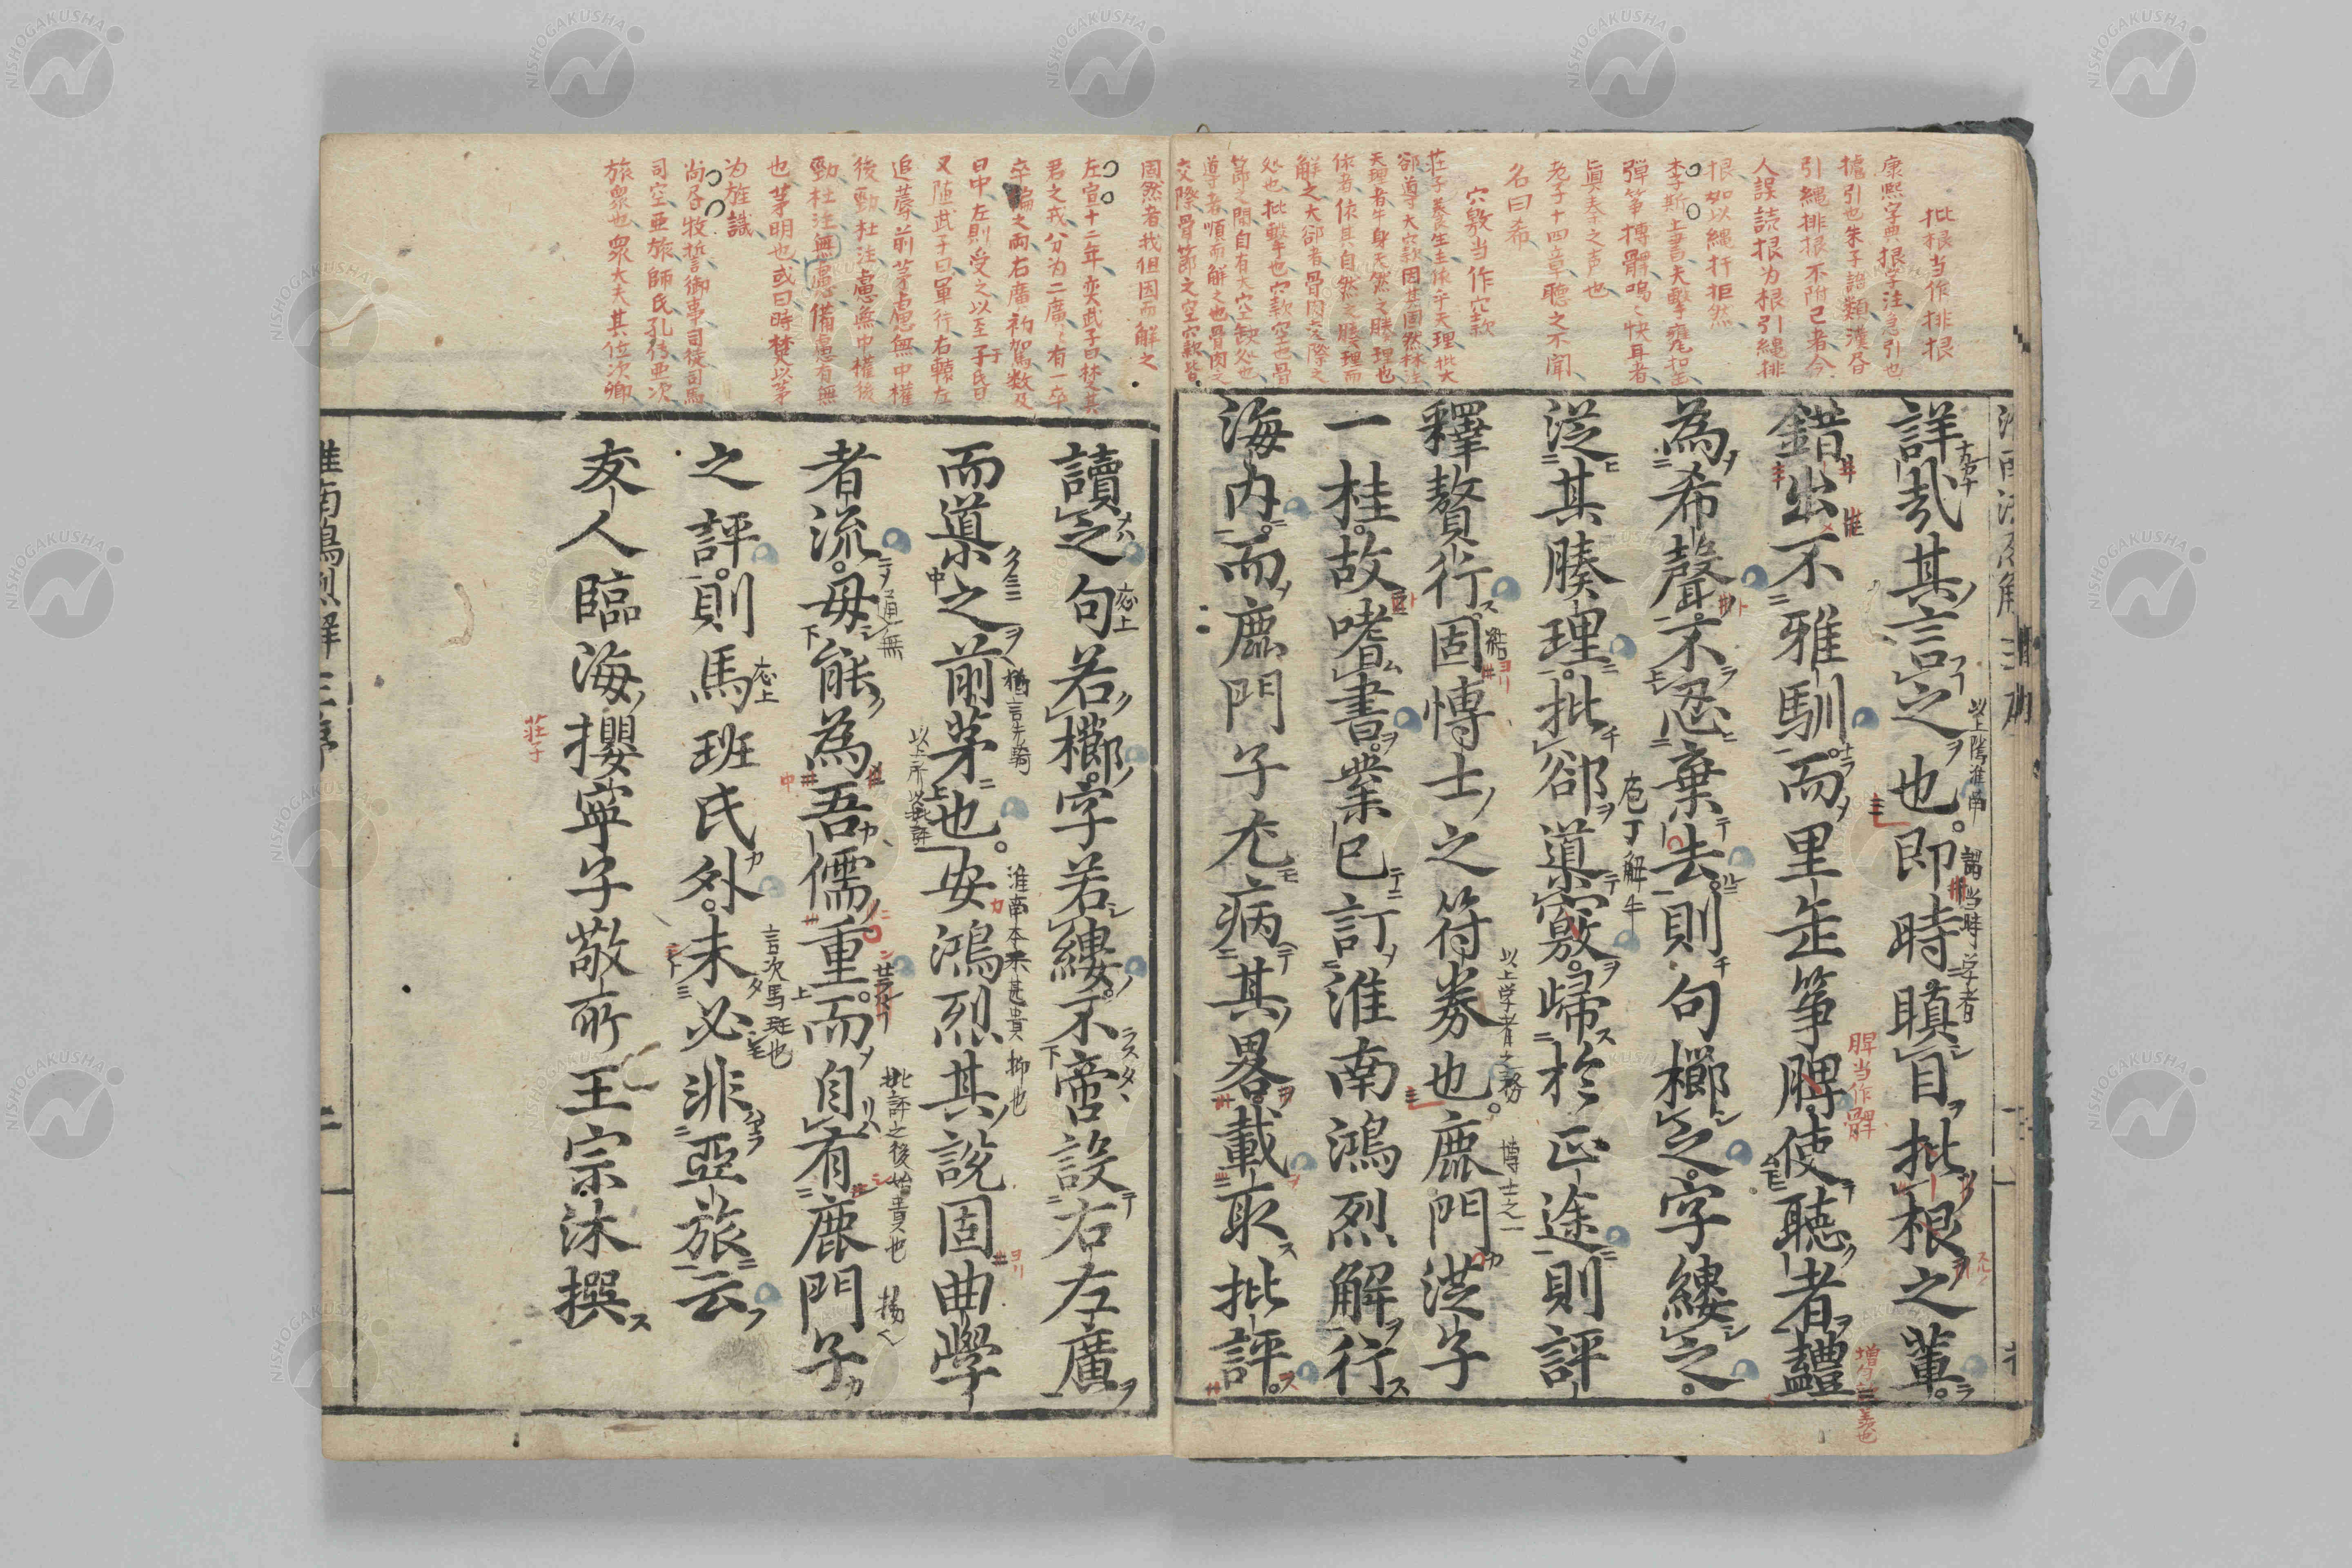 批根当作排根
康熙字典根字注急引也
摍引也朱子語類漢居
引縄排根不附己者今
人誤読根为根引縄排
根如以縄扞拒然
李斯上書夫擊甕扣缶
弾箏搏髀嗚〻快耳者
真秦之声也
老子十四章聴之不聞
名曰希
穴敫当作穴款
荘子養生主依乎天理批大
郤導大窾因其固然林注
天理者牛身天然之腠理也
依者依其自然之腠理而
解之大郤者骨肉交際之
処也批擊也穴款空也骨
節之間自有大空缺処也
導者順而解之也骨肉之
交際骨節之空窾皆
固然者我但因而解之
左宣十二年欒武子曰楚其
君之戎分为二廣〻有一卒
卒偏之両右廣初駕数及
日中左則受之以至于
又随武子曰軍行右轅左
追蓐前茅慮無中權
後勁杜注慮無中權後
勁杜注無慮備慮有無
也茅明也或曰時楚以茅
为旌識
尚居牧誓御事司徒司馬
司空亜旅師氏孔传亜次
旅衆也衆大夫其位次卿
詳哉其言之也即時瞋目批根之輩
錯出不雅馴而里缶箏脾使聴者齷
為希聲不忍棄去則句櫛之字縷之
從其腠理批郤導窾歸於正途則評
釋贅行固博士之符券也鹿門從子
一桂故嗜書業已訂淮南鴻烈解行
海內而鹿門子尤病其畧載取批評
讀之句若櫛字若縷不啻設右左廣
而導之前茅也安鴻烈其說固曲學
者流毋能為吾儒重而自有鹿門子
之評則馬班氏外未必非亞旅云
友人臨海攖寧子敬所王宗沐撰
以上隲淮南
謂当時学者
脾当作髀
庖丁解牛
以上学者之務
博士之一
猶言先騎
淮南本来甚貴抑也
以上所以戦評
通無
批評之後始貴也
揚也
言次馬班也
荘子